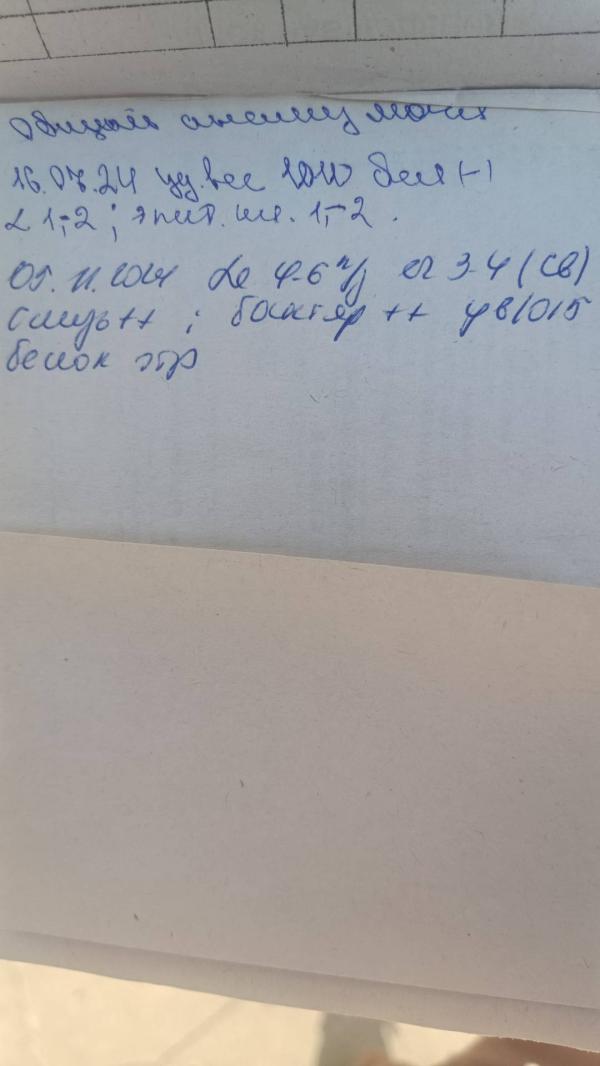 Общий анализ мочи
16.07.24 уд.вес 1010 бел (-)
L 1-2; эпит. кл. 1-2.
05.11.2024 Le 4-6 п/з er 3-4 (св)
слизь ++; бактер ++ ув 1015
белок отр